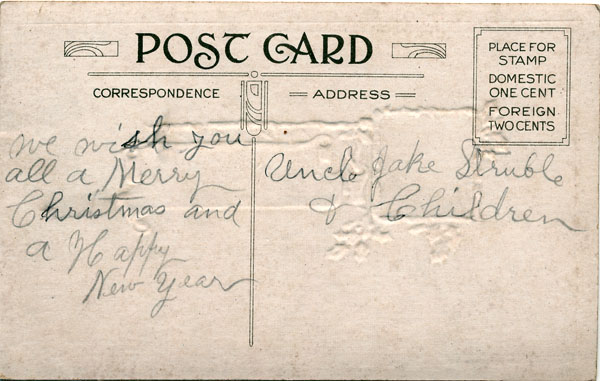 POST CARD
CORRESPONDENCE
ADDRESS
PLACE FOR
STAMP
DOMESTIC
ONE CENT
FOREIGN
TWO CENTS
we wish you
all a Merry
Christmas and
a Happy
New Year
Uncle Jake Struble
& Children